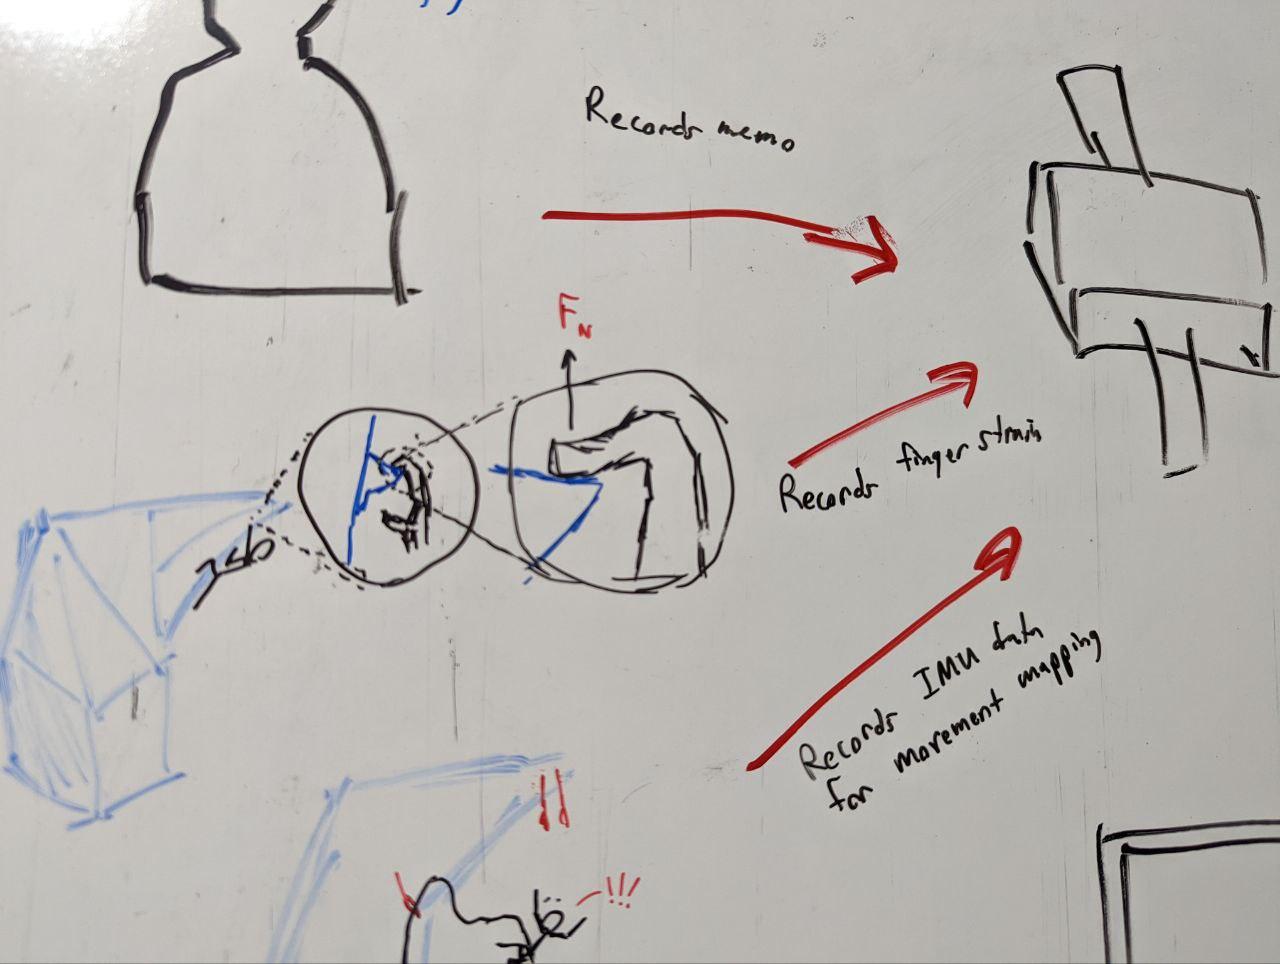 Records memo
F_N
Records finger strain
Records IMU data
for movement mapping
!!!